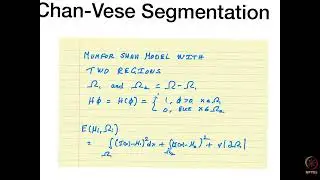 Chan-Vese Segmentation
MUMFOR SHAH MODEL WITH
TWO REGIONS
Ω₁ and Ω₂ = Ω-Ω₁
Hφ = H(φ) = { 1, φ>0 x∈Ω₁
0, else x∈Ω₂
E(μᵢ, Ω₁)
= ∫(I(x)-μ₁)²dx + ∫(I(x)-μ₂)² + ν|∂Ω|
Ω₁ Ω₂
NPTEL